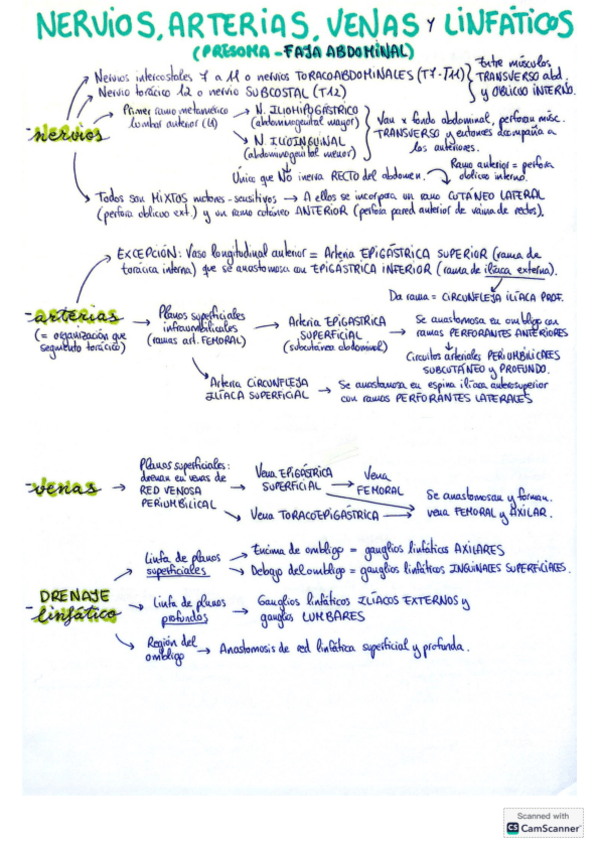 NERVIOS, ARTERIAS, VENAS Y LINFÁTICOS
(PRESOMA - FAJA ABDOMINAL)
nervios
Nervios intercostales 7 a 11 o nervios TORACOABDOMINALES (T7-T11)
Nervio torácico 12 o nervio SUBCOSTAL (T12)
Entre músculos
TRANSVERSO abd.
y OBLICUO INTERNO.
Primer ramo metamérico
lumbar anterior (L1)
N. ILIOHIPOGÁSTRICO
(abdominogenital mayor)
N. ILIOINGUINAL
(abdominogenital menor)
Van x fondo abdominal, perforan músc.
TRANSVERSO y entonces acompaña a
los anteriores.
Único que NO inerva RECTO del abdomen.
Ramo anterior = perfora
oblicuo interno.
Todos son MIXTOS motores-sensitivos → A ellos se incorpora un ramo CUTÁNEO LATERAL
(perfora oblicuo ext.) y un ramo cutáneo ANTERIOR (perfora pared anterior de vaina de rectos).
arterias
(= organización que
segmento torácico)
EXCEPCIÓN: Vaso longitudinal anterior = Arteria EPIGÁSTRICA SUPERIOR (rama de
torácica interna) que se anastomosa con EPIGÁSTRICA INFERIOR (rama de ilíaca externa).
Da rama = CIRCUNFLEJA ILÍACA PROF.
Planos superficiales
infraumbilicales
(ramas art. FEMORAL)
Arteria EPIGÁSTRICA
SUPERFICIAL
(subcutánea abdominal)
Se anastomosa en ombligo con
ramas PERFORANTES ANTERIORES
Circuitos arteriales PERIUMBILICALES
SUBCUTÁNEO y PROFUNDO.
Arteria CIRCUNFLEJA
ILÍACA SUPERFICIAL
Se anastomosa en espina ilíaca anterosuperior
con ramos PERFORANTES LATERALES
venas
Planos superficiales:
drenan en venas de
RED VENOSA
PERIUMBILICAL
Vena EPIGÁSTRICA
SUPERFICIAL
Vena
FEMORAL
Vena TORACOEPIGÁSTRICA
Se anastomosan y forman
vena FEMORAL y AXILAR.
DRENAJE
linfático
Linfa de planos
superficiales
Encima de ombligo = ganglios linfáticos AXILARES
Debajo del ombligo = ganglios linfáticos INGUINALES SUPERFICIALES.
Linfa de planos
profundos
Ganglios linfáticos ILÍACOS EXTERNOS y
ganglios LUMBARES
Región del
ombligo
Anastomosis de red linfática superficial y profunda.
Scanned with
CS CamScanner